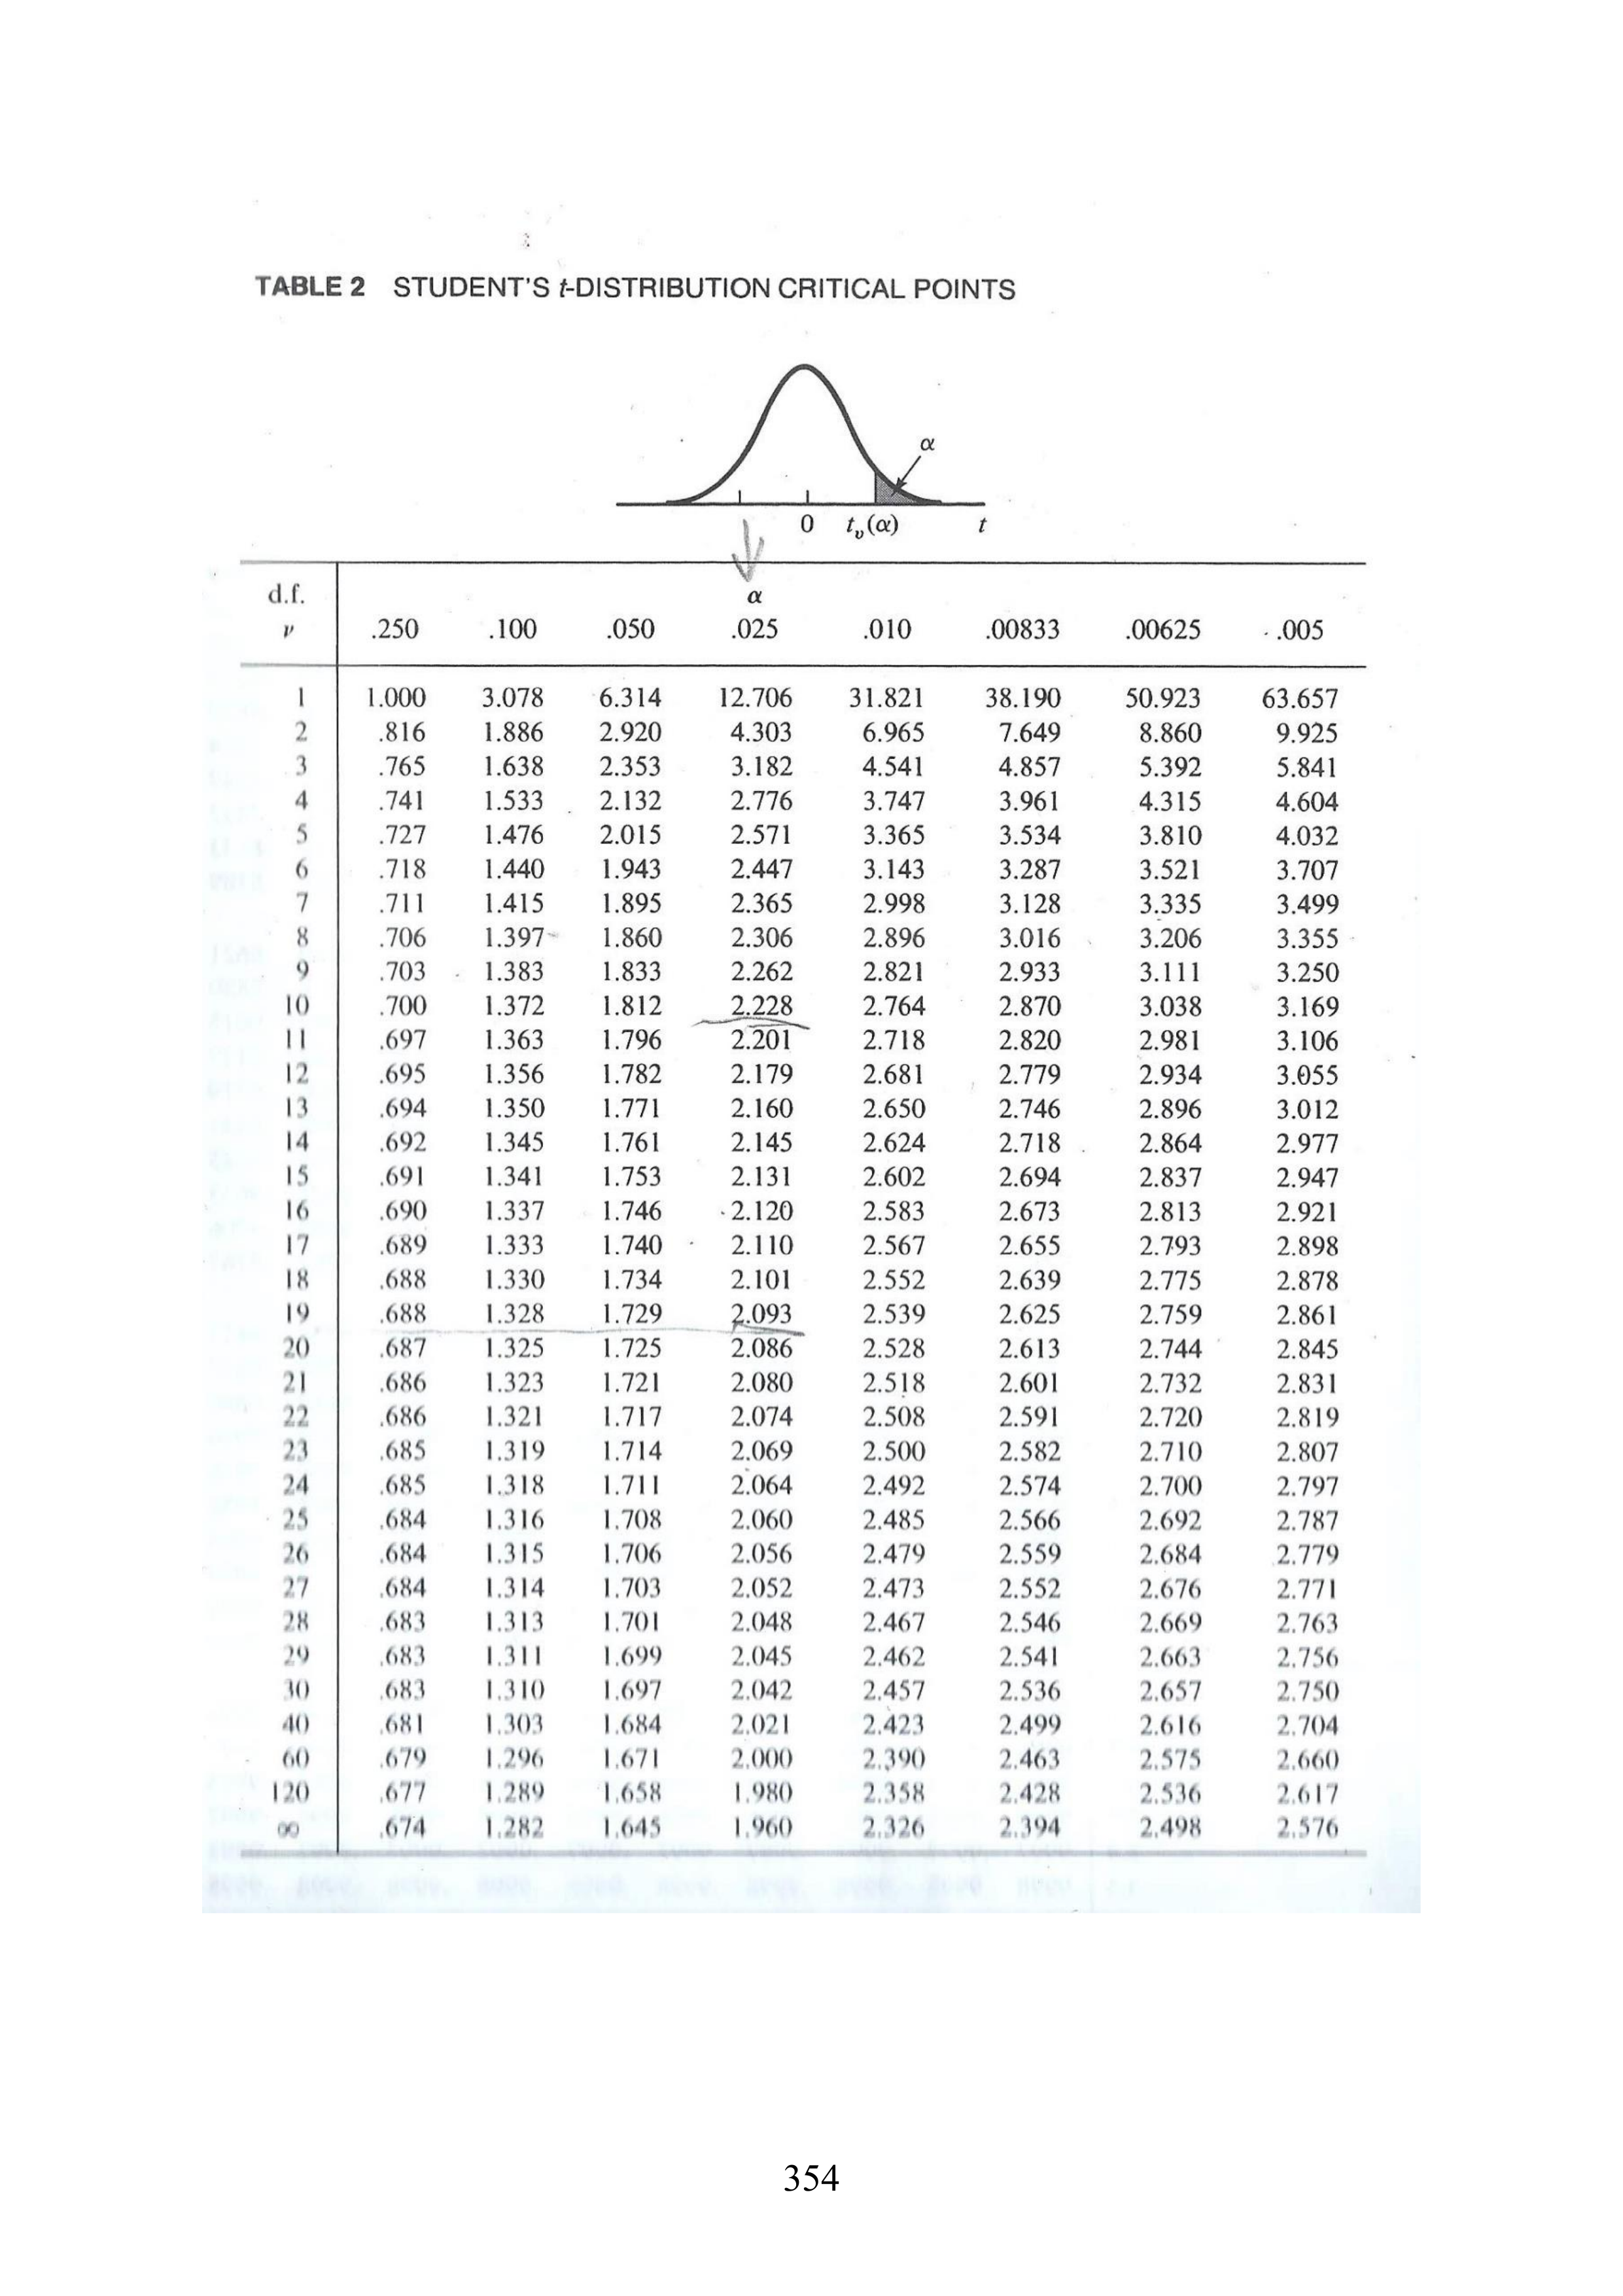 TABLE 2 STUDENT'S t-DISTRIBUTION CRITICAL POINTS
α
0 tν(α) t
d.f. α
ν .250 .100 .050 .025 .010 .00833 .00625 .005
1 1.000 3.078 6.314 12.706 31.821 38.190 50.923 63.657
2 .816 1.886 2.920 4.303 6.965 7.649 8.860 9.925
3 .765 1.638 2.353 3.182 4.541 4.857 5.392 5.841
4 .741 1.533 2.132 2.776 3.747 3.961 4.315 4.604
5 .727 1.476 2.015 2.571 3.365 3.534 3.810 4.032
6 .718 1.440 1.943 2.447 3.143 3.287 3.521 3.707
7 .711 1.415 1.895 2.365 2.998 3.128 3.335 3.499
8 .706 1.397 1.860 2.306 2.896 3.016 3.206 3.355
9 .703 1.383 1.833 2.262 2.821 2.933 3.111 3.250
10 .700 1.372 1.812 2.228 2.764 2.870 3.038 3.169
11 .697 1.363 1.796 2.201 2.718 2.820 2.981 3.106
12 .695 1.356 1.782 2.179 2.681 2.779 2.934 3.055
13 .694 1.350 1.771 2.160 2.650 2.746 2.896 3.012
14 .692 1.345 1.761 2.145 2.624 2.718 2.864 2.977
15 .691 1.341 1.753 2.131 2.602 2.694 2.837 2.947
16 .690 1.337 1.746 2.120 2.583 2.673 2.813 2.921
17 .689 1.333 1.740 2.110 2.567 2.655 2.793 2.898
18 .688 1.330 1.734 2.101 2.552 2.639 2.775 2.878
19 .688 1.328 1.729 2.093 2.539 2.625 2.759 2.861
20 .687 1.325 1.725 2.086 2.528 2.613 2.744 2.845
21 .686 1.323 1.721 2.080 2.518 2.601 2.732 2.831
22 .686 1.321 1.717 2.074 2.508 2.591 2.720 2.819
23 .685 1.319 1.714 2.069 2.500 2.582 2.710 2.807
24 .685 1.318 1.711 2.064 2.492 2.574 2.700 2.797
25 .684 1.316 1.708 2.060 2.485 2.566 2.692 2.787
26 .684 1.315 1.706 2.056 2.479 2.559 2.684 2.779
27 .684 1.314 1.703 2.052 2.473 2.552 2.676 2.771
28 .683 1.313 1.701 2.048 2.467 2.546 2.669 2.763
29 .683 1.311 1.699 2.045 2.462 2.541 2.663 2.756
30 .683 1.310 1.697 2.042 2.457 2.536 2.657 2.750
40 .681 1.303 1.684 2.021 2.423 2.499 2.616 2.704
60 .679 1.296 1.671 2.000 2.390 2.463 2.575 2.660
120 .677 1.289 1.658 1.980 2.358 2.428 2.536 2.617
∞ .674 1.282 1.645 1.960 2.326 2.394 2.498 2.576
354